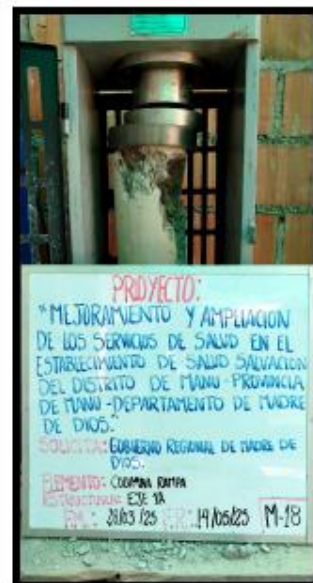 PROYECTO:
"MEJORAMIENTO Y AMPLIACION
DE LOS SERVICIOS DE SALUD EN EL
ESTABLECIMIENTO DE SALUD SALVACION
DEL DISTRITO DE MANU-PROVINCIA
DE MANU-DEPARTAMENTO DE MADRE
DE DIOS."
SOLICITA: GOBIERNO REGIONAL DE MADRE DE
DIOS.
ELEMENTO: COLUMNA RAMPA
ESTRUCTURA: EJE 1A
/03/25 F.R.: 14/05/25 M-18